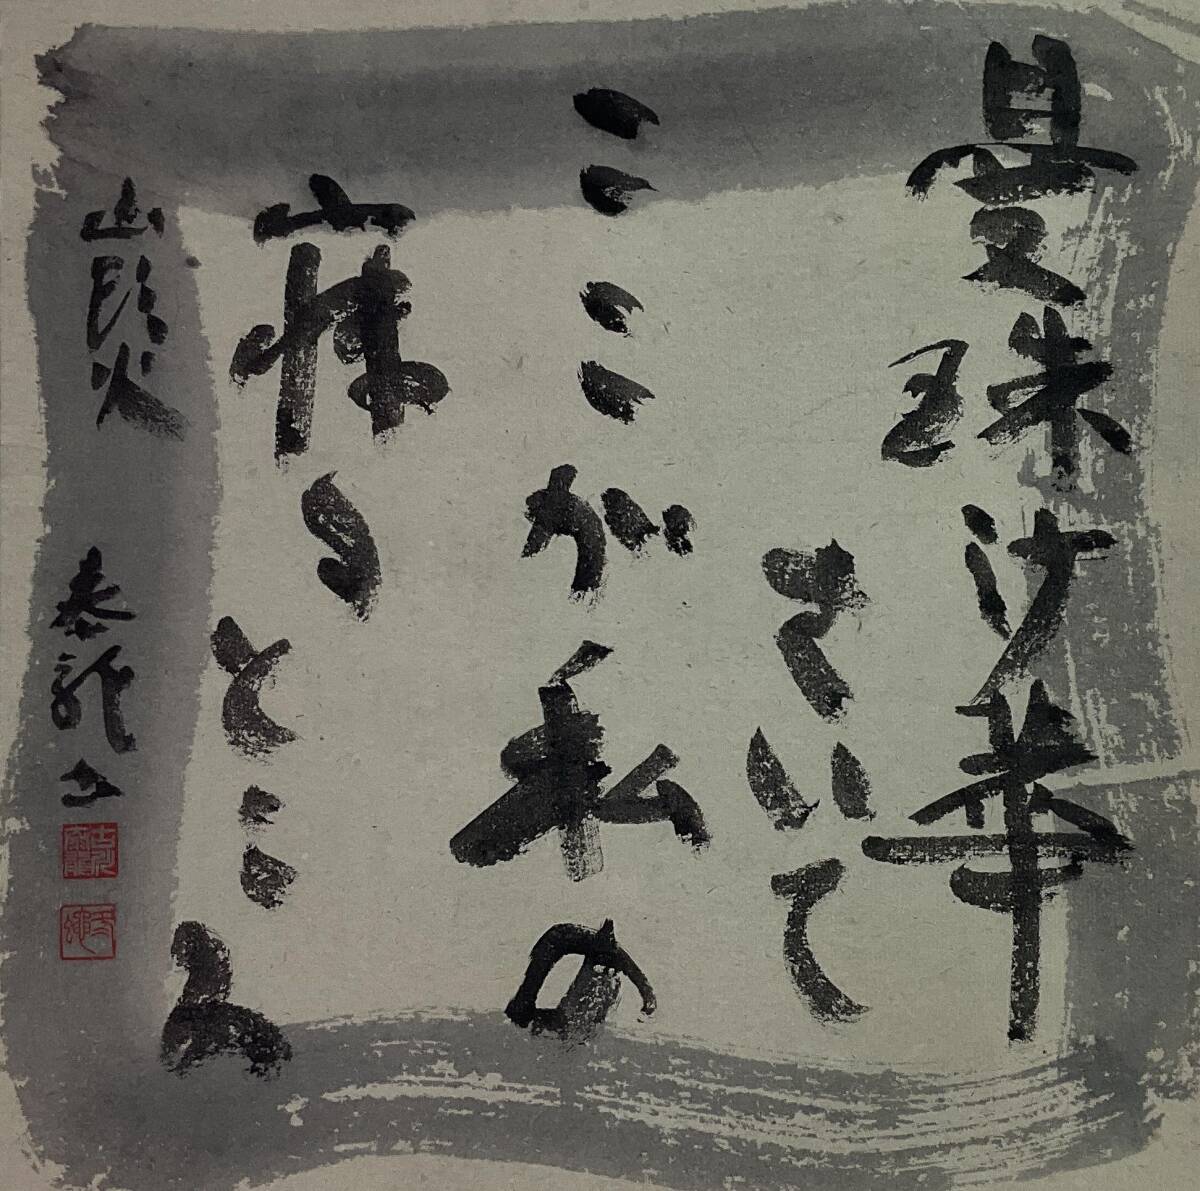 曼珠沙華
さいて
ここが私の
寝るところ
山頭火
泰龍